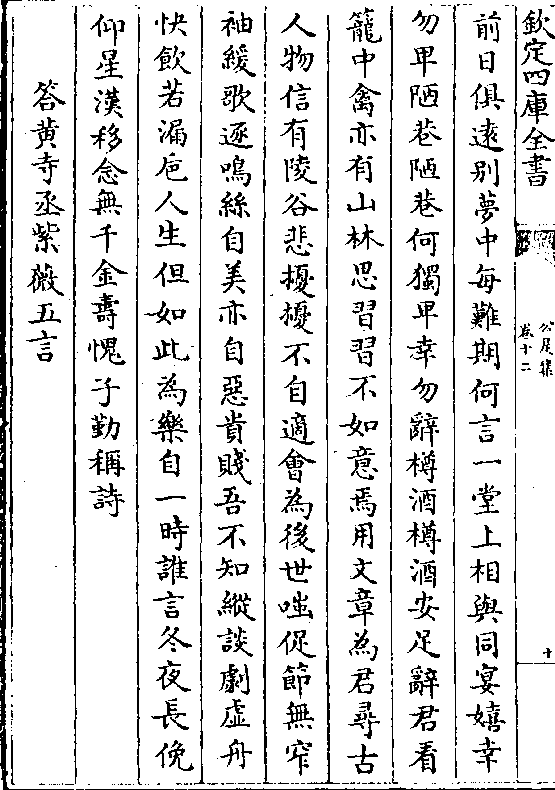 欽定四庫全書
公是集
卷十二
十
前日俱遠别夢中每難期何言一堂上相與同宴嬉幸
勿卑陋巷陋巷何獨卑幸勿辭樽酒樽酒安足辭君看
籠中禽亦有山林思習習不如意焉用文章為君尋古
人物信有陵谷悲擾擾不自適會為後世嗤促節無窄
袖緩歌逐鳴絲自美亦自惡貴賤吾不知縱談劇虚舟
快飲若漏巵人生但如此為樂自一時誰言冬夜長俛
仰星漢移念無千金壽愧子勤稱詩
答黄寺丞紫薇五言